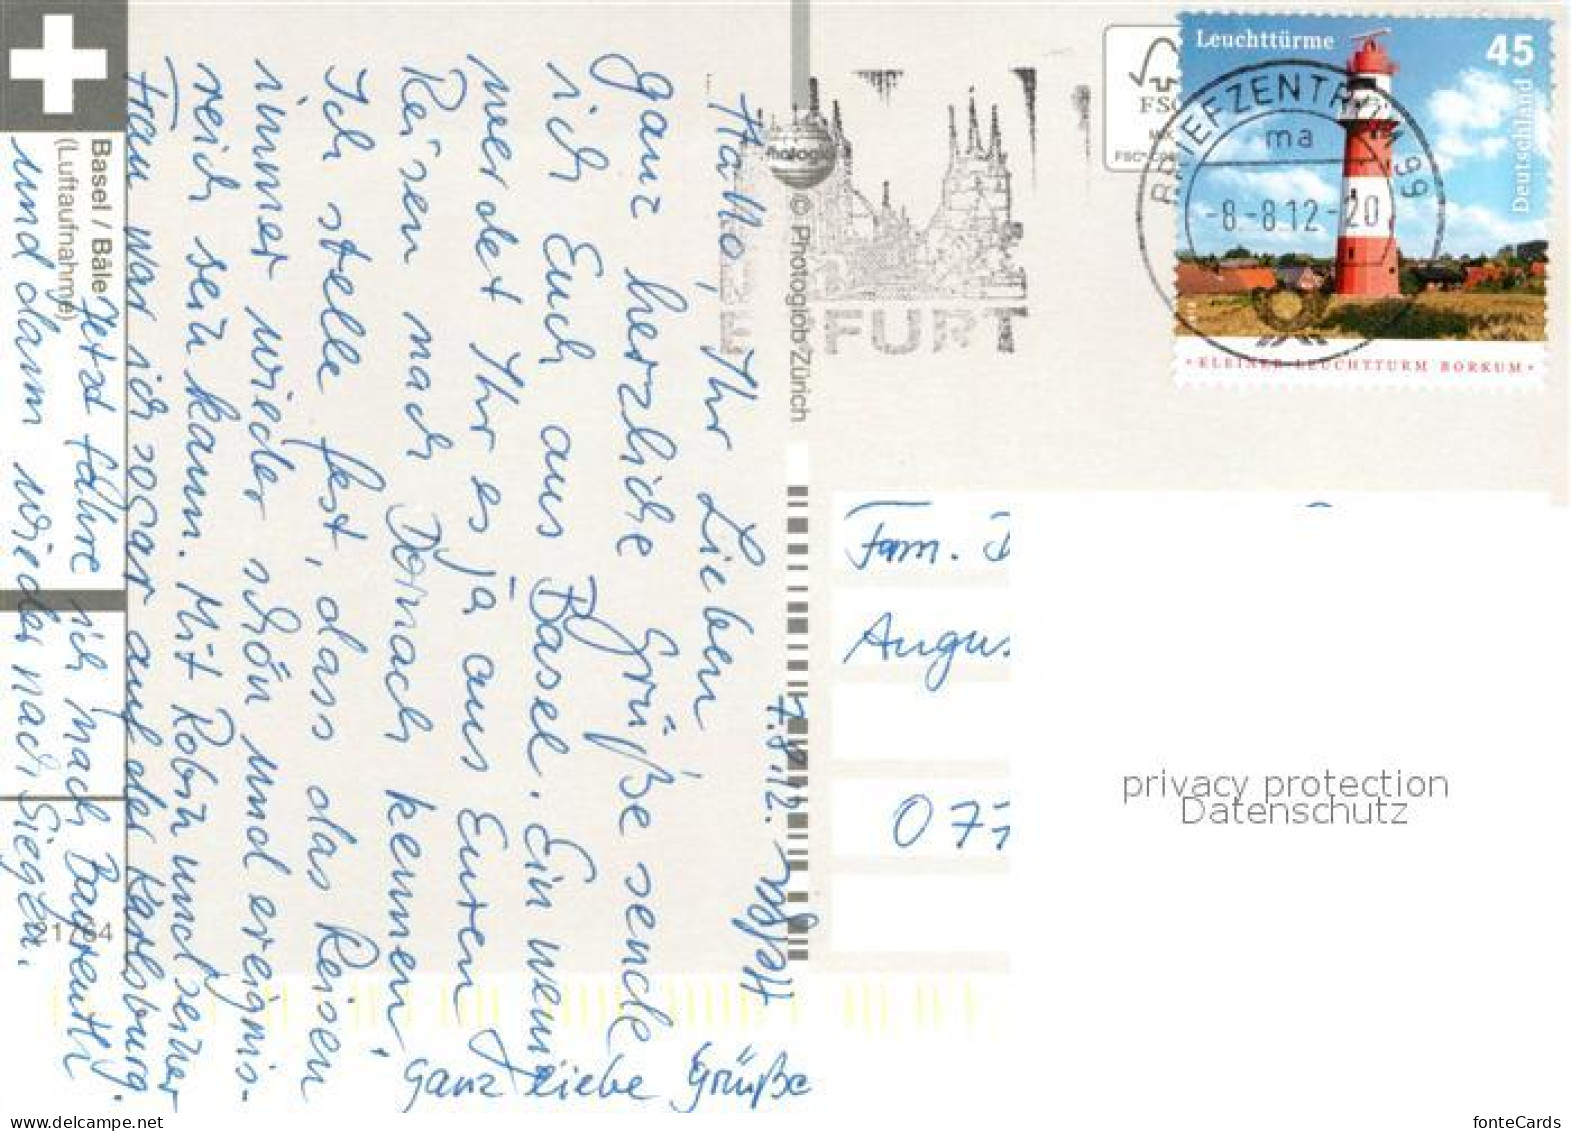 7.8.12.
Hallo, Ihr Lieben
ganz herzliche Grüße sende
ich Euch aus Basel. Ein wenig
werdet Ihr es ja aus Euren
Reisen nach Dornach kennen,
Ich stelle fest, dass das Reisen
immer wieder schön und ereignis-
reich sein kann. Mit Robin und seiner
Frau war ich sogar auf der Karlsburg.
Jetzt fahre ich nach Bayreuth
und dann wieder nach Siegen.
ganz liebe Grüße
Basel / Bâle
(Luftaufnahme)
21764
Photoglob
© Photoglob Zürich
ERFURT
FSC
Leuchttürme
45
Deutschland
• KLEINER LEUCHTTURM BORKUM •
BRIEFZENTRUM 99
ma
-8.-8.12-20
Fam.
Augus
077
privacy protection
Datenschutz
www.delcampe.net
fonteCards